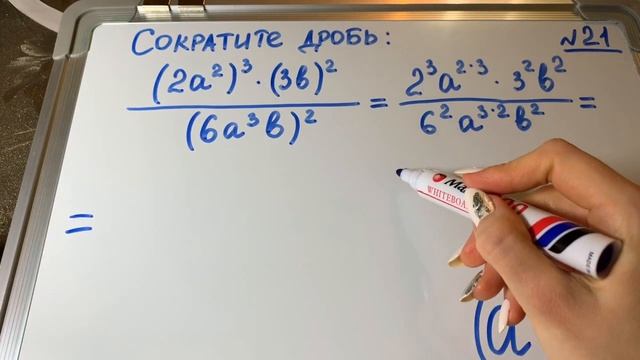 Сократите дробь: №21
(2a²)³ · (3b)² / (6a³b)² = 2³a²·³ · 3²b² / 6²a³·²b² =
=
(a
WHITEBOA